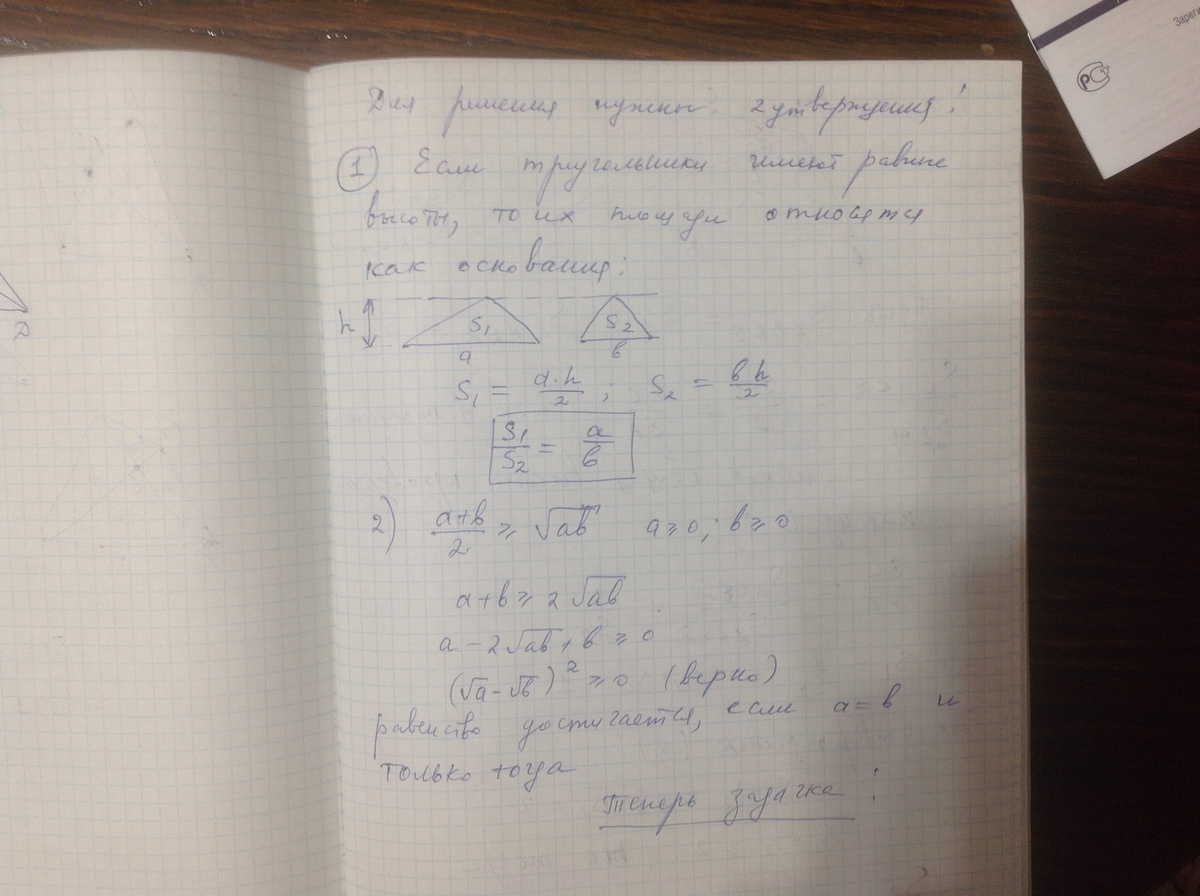 Для решения нужны 2 утверждения:
① Если треугольники имеют равные
высоты, то их площади относятся
как основания:
h S₁ S₂
a в
S₁ = a·h/2 ; S₂ = вh/2
S₁/S₂ = a/в
2) (a+в)/2 ≥ √aв a≥0; в≥0
a+в ≥ 2√aв
a - 2√aв + в ≥ 0
(√a - √в)² ≥ 0 (верно)
равенство достигается, если a=в и
только тогда
Теперь задачка:
D
Зареги
РС